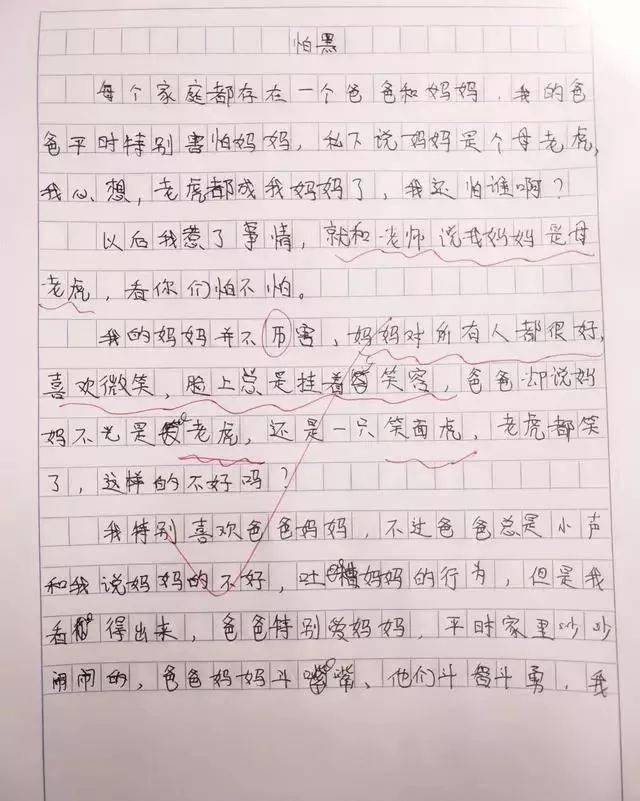 怕黑
每个家庭都存在一个爸爸和妈妈，我的爸
爸平时特别害怕妈妈，私下说妈妈是个母老虎，
我心想，老虎都成我妈妈了，我还怕谁啊？
以后我惹了事情，就和老师说我妈妈是母
老虎，看你们怕不怕。
我的妈妈并不厉害，妈妈对所有人都很好，
喜欢微笑，脸上总是挂着笑容，爸爸却说妈
妈不光是老虎，还是一只笑面虎，老虎都笑
了，这样的不好吗？
我特别喜欢爸爸妈妈，不过爸爸总是小声
和我说妈妈的不好，吐槽妈妈的行为，但是我
看得出来，爸爸特别爱妈妈，平时家里吵吵
闹闹的，爸爸妈妈斗嘴、他们斗智斗勇，我